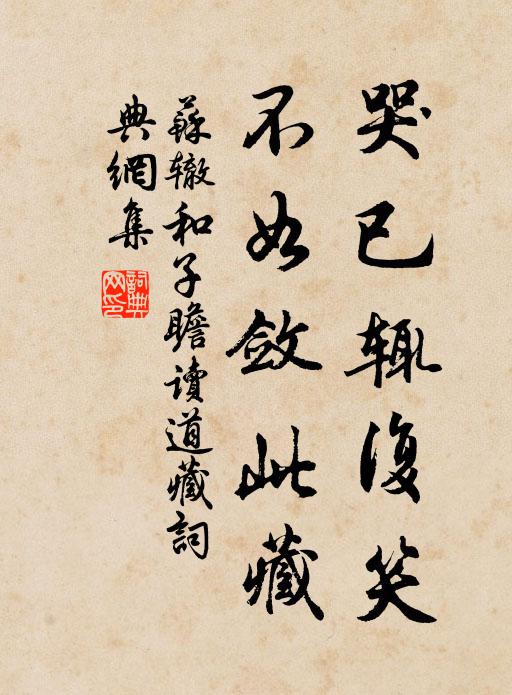 哭已辄復笑
不如斂此藏
蘇辙和子瞻讀道藏詞
典網集
詞典
网印